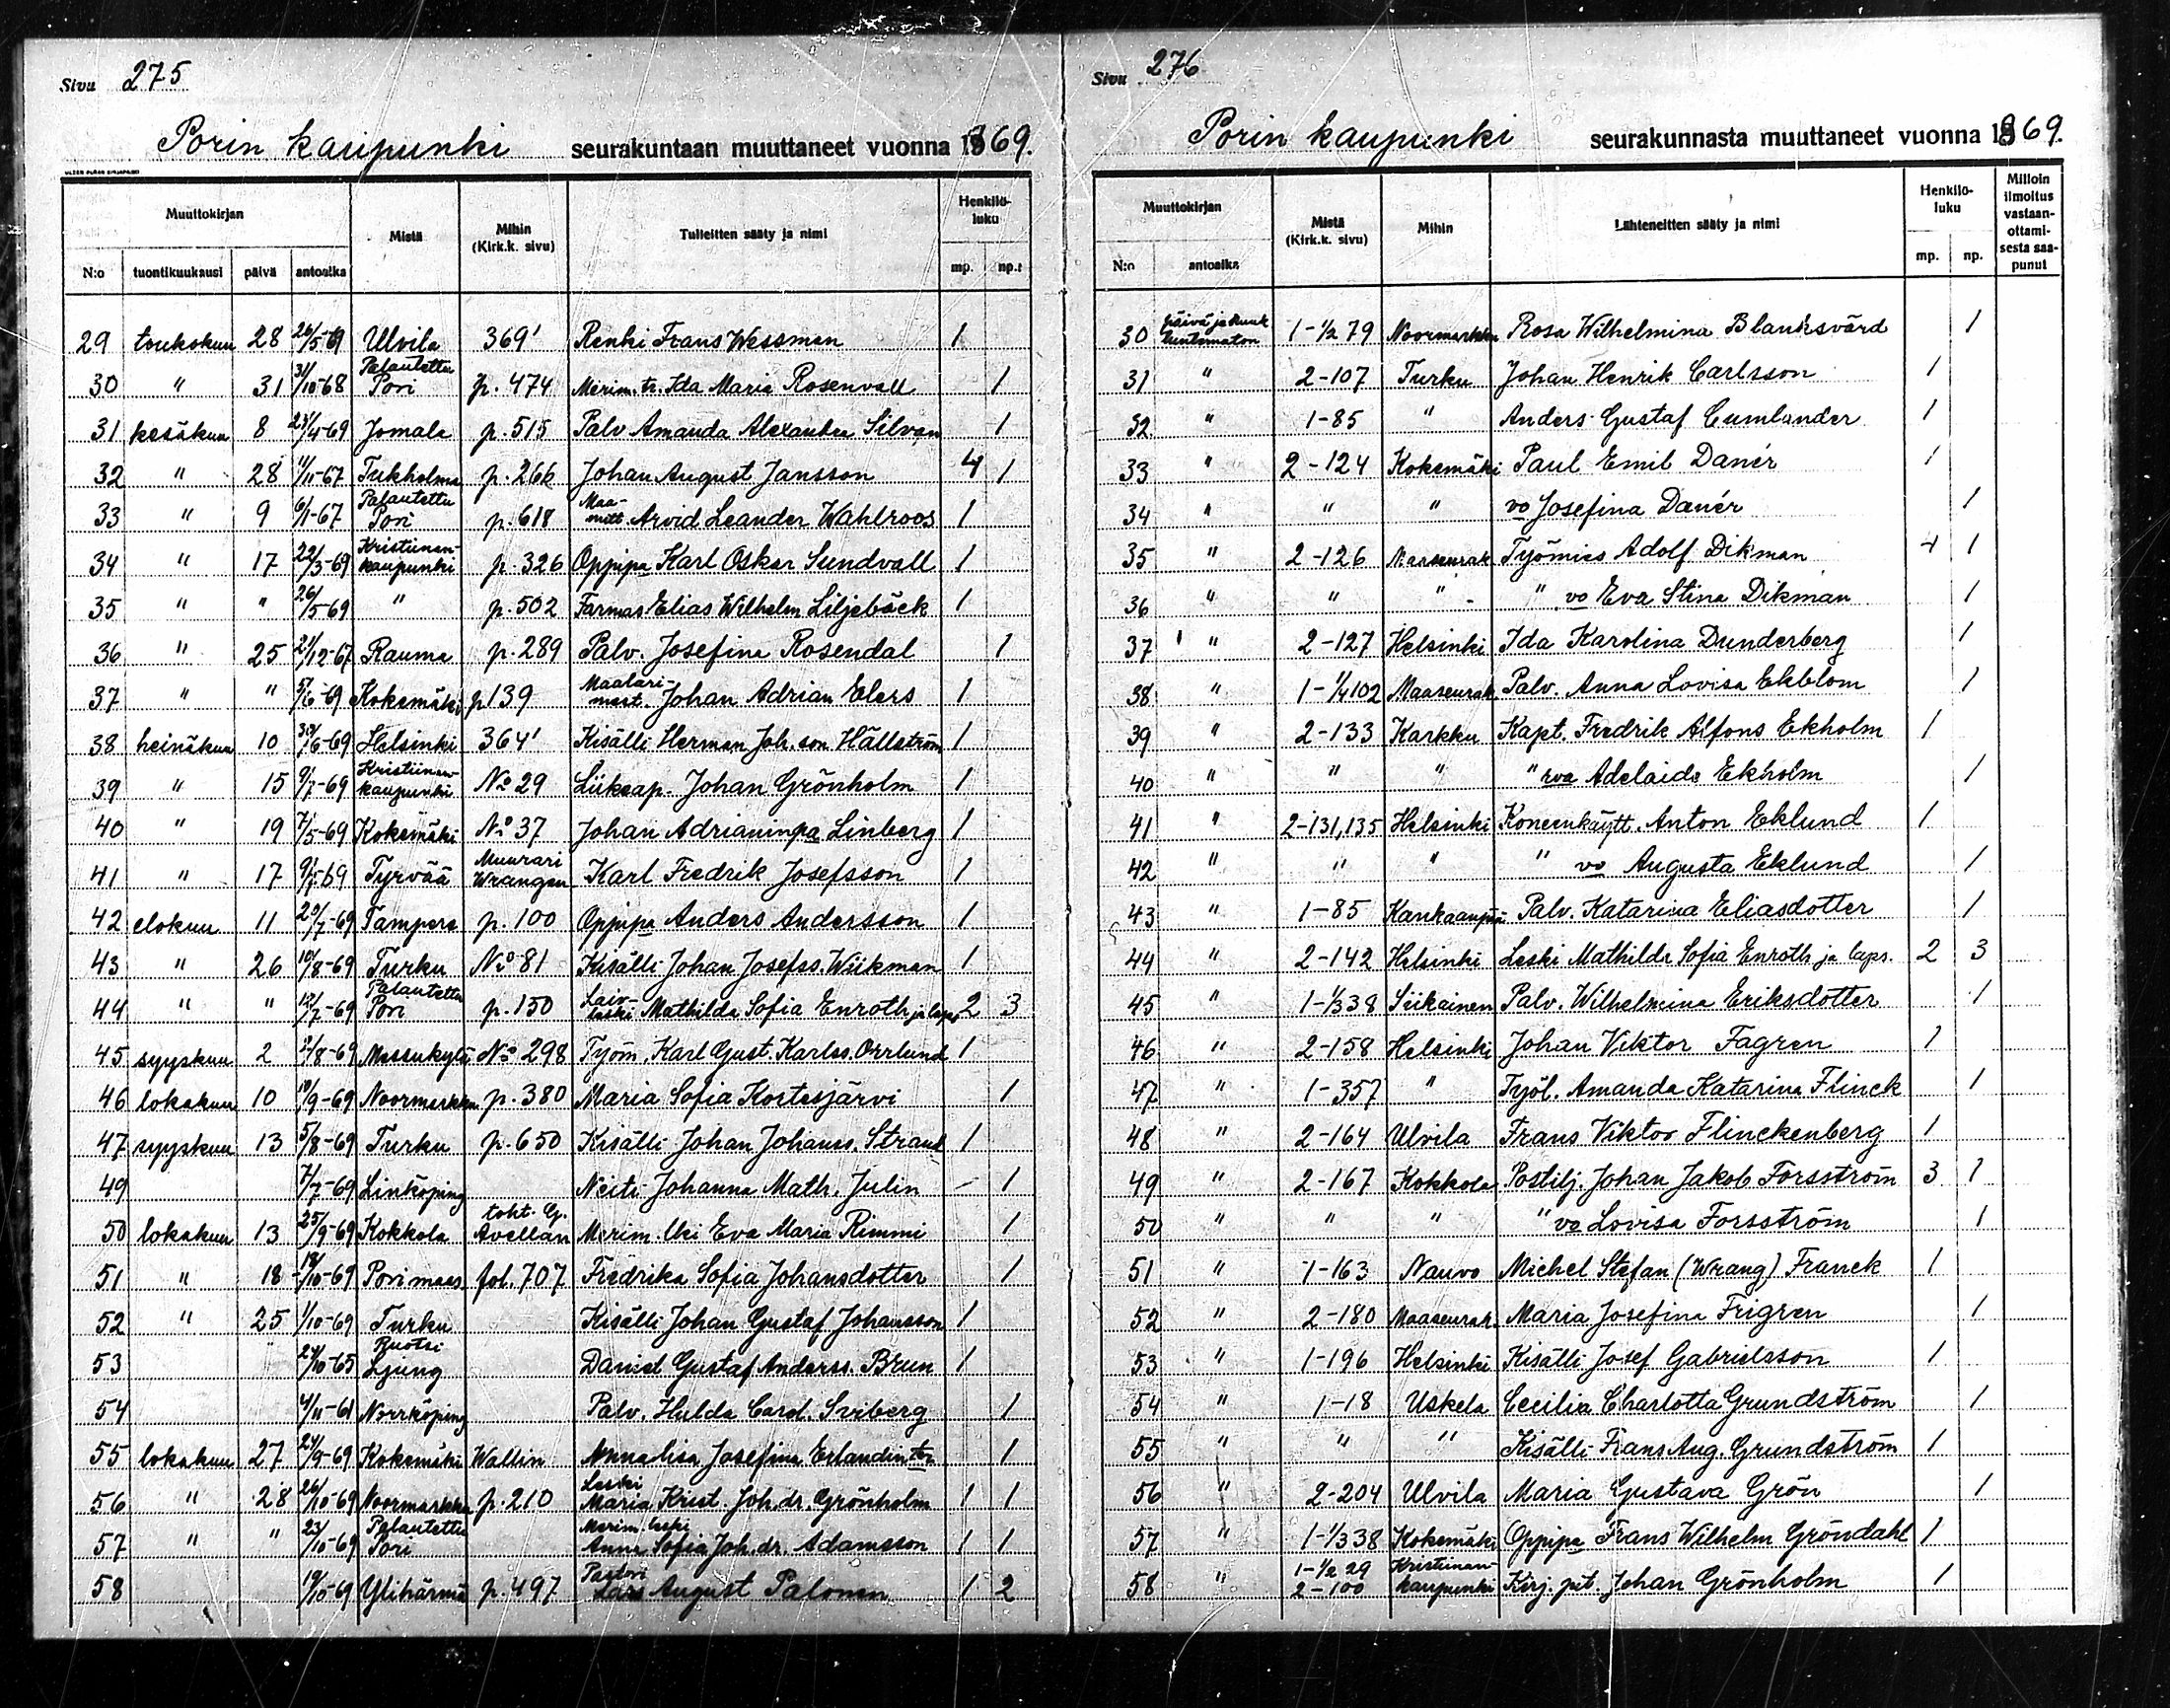 Sivu 275
Porin kaupunki seurakuntaan muuttaneet vuonna 1869.
Muuttokirjan Mistä Mihin (Kirk.k. sivu) Tulleitten sääty ja nimi Henkilö-luku
N:o tuontikuukausi päivä antoaika mp. np.
29 toukokuu 28 26/5-69 Ulvila 369' Renki Frans Wessman 1
30 " 31 31/10-68 Palautettu Pori p. 474 Merim. tr. Ida Maria Rosenvall 1
31 kesäkuu 8 23/4-69 Jomala p. 515 Palv Amanda Alexandra Silvan 1
32 " 28 1/11-67 Tukholma p. 266 Johan August Jansson 4 1
33 " 9 6/1-67 Palautettu Pori p. 618 Maa-mitt. Arvid Leander Wahlroos 1
34 " 17 22/3-69 Kristiinan-kaupunki p. 326 Oppipa Karl Oskar Sundvall 1
35 " " 26/5-69 " p. 502 Farmas Elias Wilhelm Liljebäck 1
36 " 25 21/12-67 Rauma p. 289 Palv. Josefina Rosendal 1
37 " " 5/6-69 Kokemäki p 139 Maalari-mest. Johan Adrian Elers 1
38 heinäkuu 10 30/6-69 Helsinki 364' Kisälli Herman Joh. son Hällström 1
39 " 15 9/7-69 Kristiinan-kaupunki No 29 Liikeap. Johan Grönholm 1
40 " 19 7/5-69 Kokemäki No 37 Johan Adrianinpa Linberg 1
41 " 17 Tyrvää Muurari Wrangen Karl Fredrik Josefsson 1
42 elokuu 11 20/7-69 Tampere p. 100 Oppipa Anders Andersson 1
43 " 26 10/8-69 Turku No 81 Kisälli Johan Josefss. Wiikman 1
44 " " 12/7-69 Palautettu Pori p. 150 Laiv-leski Mathilda Sofia Enroth ja laps 2 3
45 syyskuu 2 2/8-69 Messukylä No 298 Työm. Karl Gust. Karlss. Orrlund 1
46 lokakuu 10 10/9-69 Noormarkku p. 380 Maria Sofia Kortesjärvi 1
47 syyskuu 13 5/8-69 Turku p. 650 Kisälli Johan Johanss. Strand 1
49 7/7-69 Linköping Neiti Johanna Math. Julin - 1
50 lokakuu 13 25/9-69 Kokkola toht. G. Avellan Merim. lki Eva Maria Rimmi 1
51 " 18 18/10-69 Pori maas. fol. 707 Fredrika Sofia Johansdotter 1
52 " 25 1/10-69 Turku Kisälli Johan Gustaf Johansson 1
53 " 24/10-65 Ruotsi Ljung Daniel Gustaf Anderss. Brun 1
54 4/11-61 Norrköping Palv. Hulda Carol. Sviberg 1
55 lokakuu 27 24/9-69 Kokemäki Wallin Annalisa Josefina Erlandintr. 1
56 " 28 26/10-69 Noormarkku p. 210 Leski Maria Krist. Joh. dr. Grönholm 1 1
57 " " 23/10-69 Palautettu Pori Merim. leski Anna Sofia Joh. dr. Adamsson 1 1
58 19/10-69 Ylihärmä p. 497 Pastori Lars August Palonen 1 2
Sivu 276
Porin kaupunki seurakunnasta muuttaneet vuonna 1869.
Muuttokirjan Mistä (Kirk.k. sivu) Mihin Lähteneitten sääty ja nimi Henkilö-luku Milloin ilmoitus vastaan-ottami-sesta saa-punut
N:o antoaika mp. np.
30 päivä ja kuuk tuntematon 1-1/2 79 Noormarkku Rosa Wilhelmina Blanksvärd 1
31 " 2-107 Turku Johan Henrik Carlsson 1
32 " 1-85 " Anders Gustaf Cumlander 1
33 " 2-124 Kokemäki Paul Emil Danér 1
34 " " " vo Josefina Danér 1
35 " 2-126 Maaseurak Työmies Adolf Dikman 1 1
36 " " " " vo Eva Stina Dikman 1
37 " 2-127 Helsinki Ida Karolina Dunderberg 1
38 " 1-1/4 102 Maaseurak. Palv. Anna Lovisa Ekblom 1
39 " 2-133 Karkku Kapt. Fredrik Alfons Ekholm 1
40 " " " " rva Adelaide Ekholm 1
41 " 2-131,135 Helsinki Koneenkäytt. Anton Eklund 1
42 " " " " vo Augusta Eklund 1
43 " 1-85 Kankaanpää Palv. Katarina Eliasdotter 1
44 " 2-142 Helsinki Leski Mathilda Sofia Enroth ja laps. 2 3
45 " 1-1/3 38 Siikainen Palv. Wilhelmina Eriksdotter 1
46 " 2-158 Helsinki Johan Viktor Fagren 1
47 " 1-357 " Työl. Amanda Katarina Flinck 1
48 " 2-164 Ulvila Frans Viktor Flinckenberg 1
49 " 2-167 Kokkola Postilj. Johan Jakob Forsström 3 1
50 " " " " vo Lovisa Forsström 1
51 " 1-163 Nauvo Michel Stefan (Wrang) Franck 1
52 " 2-180 Maaseurak. Maria Josefina Frigren 1
53 " 1-196 Helsinki Kisälli Josef Gabrielsson 1
54 " 1-18 Uskela Cecilia Charlotta Grundström 1
55 " " " Kisälli Frans Aug. Grundström 1
56 " 2-204 Ulvila Maria Gustava Grön 1
57 " 1-1/3 38 Kokemäki Oppipa Frans Wilhelm Gröndahl 1
58 " 1-1/2 29 2-100 Kristiinan-kaupunki Kirj. pit. Johan Grönholm 1